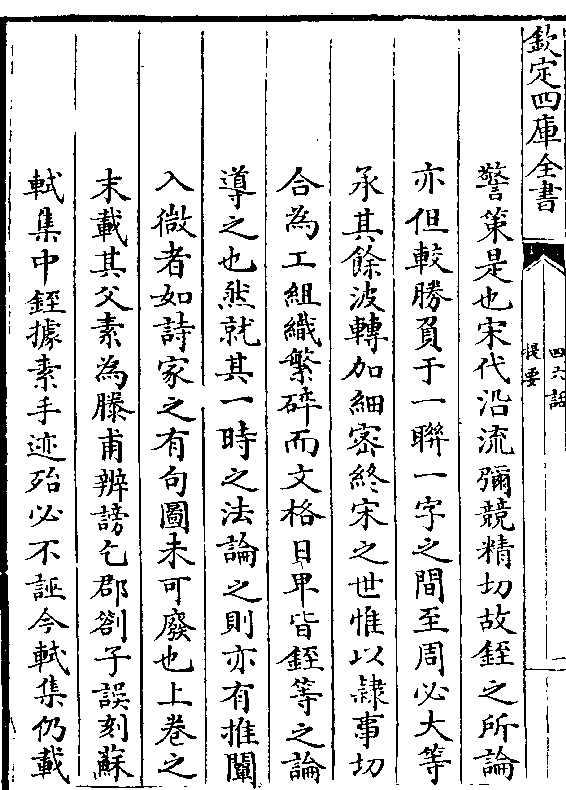 欽定四庫全書
四六話
提要
二
警策是也宋代沿流彌競精切故銍之所論
亦但較勝負于一聯一字之間至周必大等
承其餘波轉加細密終宋之世惟以隸事切
合為工組織繁碎而文格日卑皆銍等之論
導之也然就其一時之法論之則亦有推闡
入微者如詩家之有句圖未可廢也上卷之
末載其父素為滕甫辨謗乞郡劄子誤刻蘇
軾集中銍據素手迹殆必不誣今軾集仍載